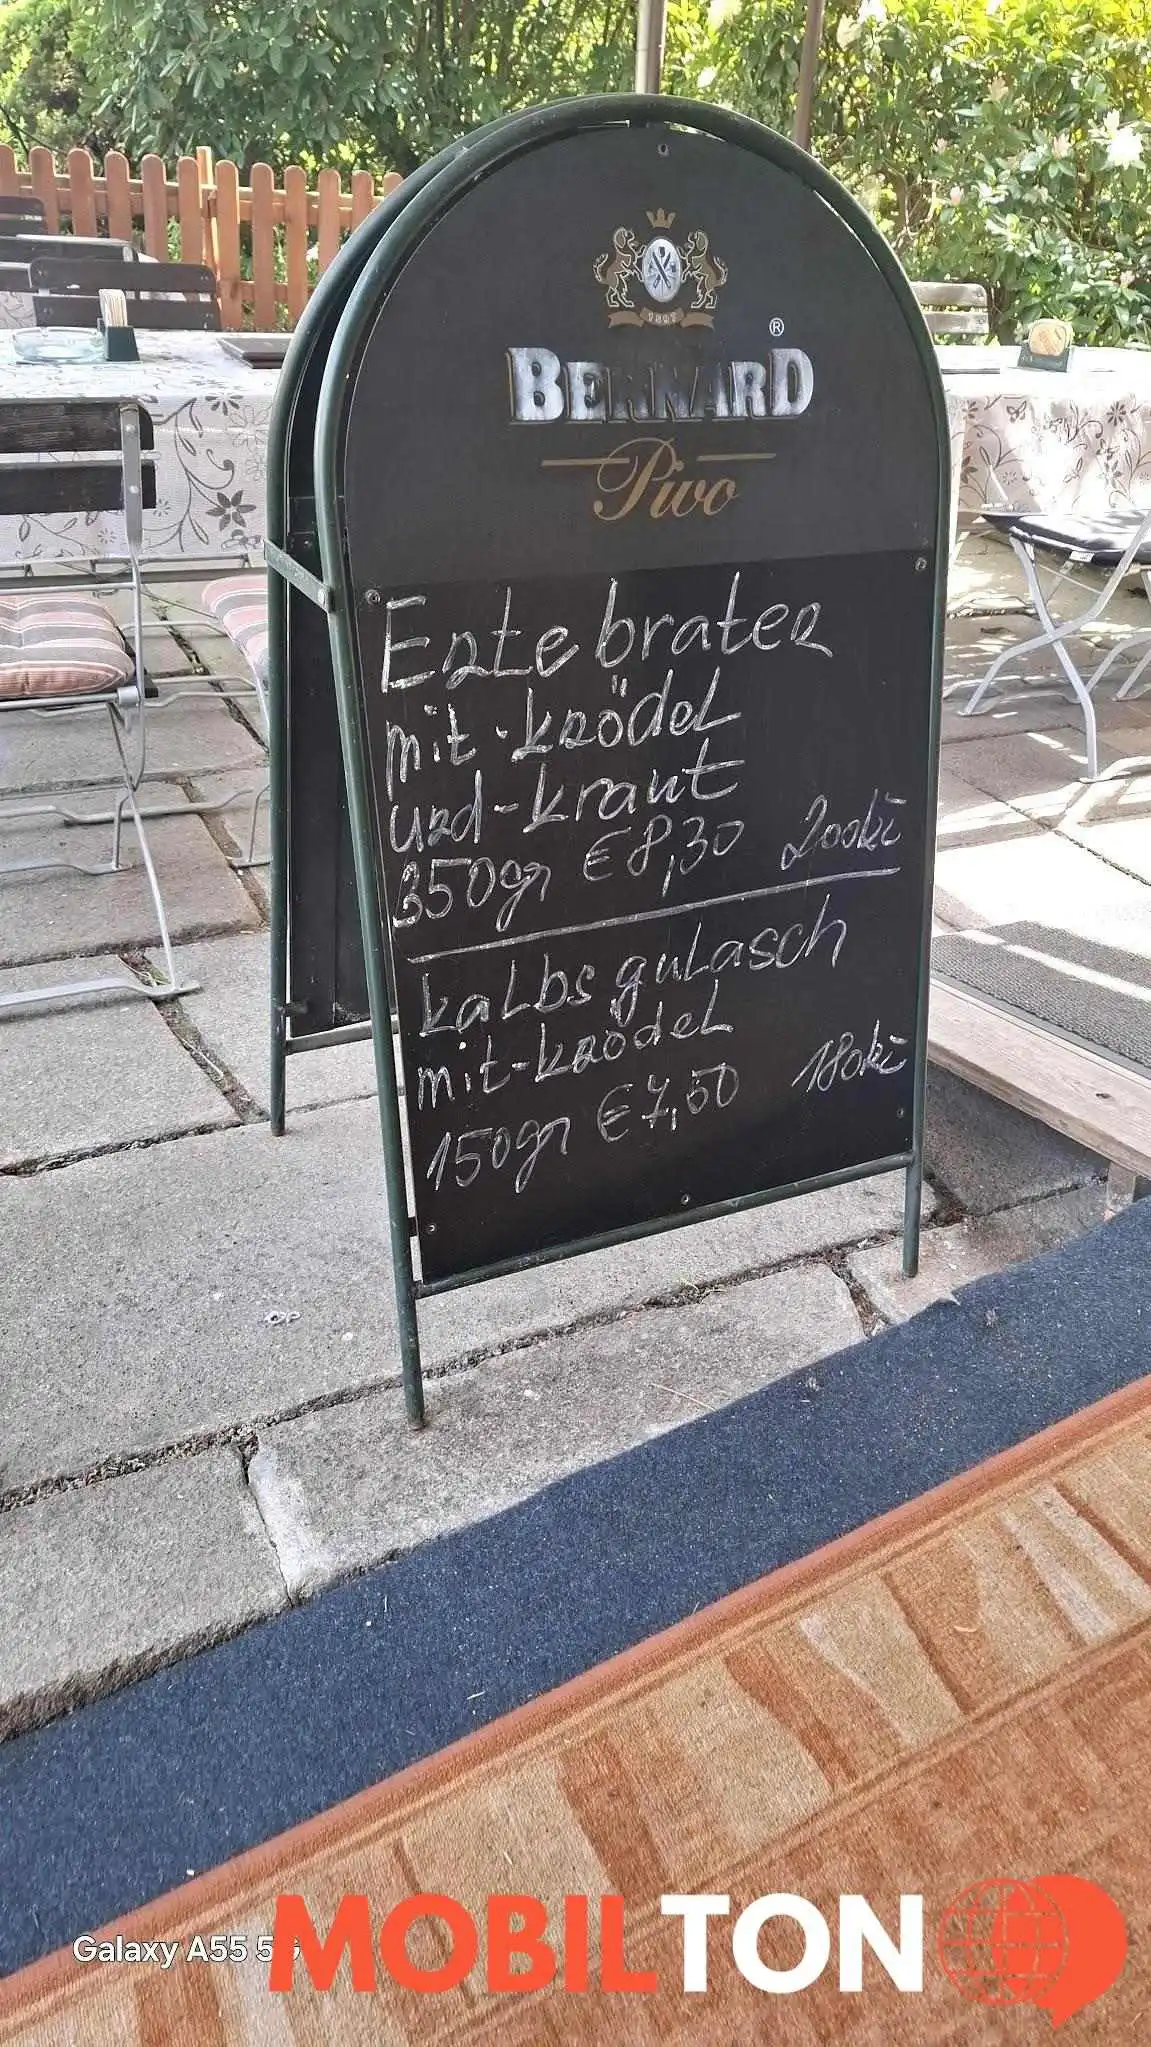 1597
BERNARD®
Pivo
Ente braten
mit-knödel
und-kraut
350gr €8,30 200kč
kalbs gulasch
mit-knödel
150gr €7,50 180kč
Galaxy A55 5G
MOBILTON